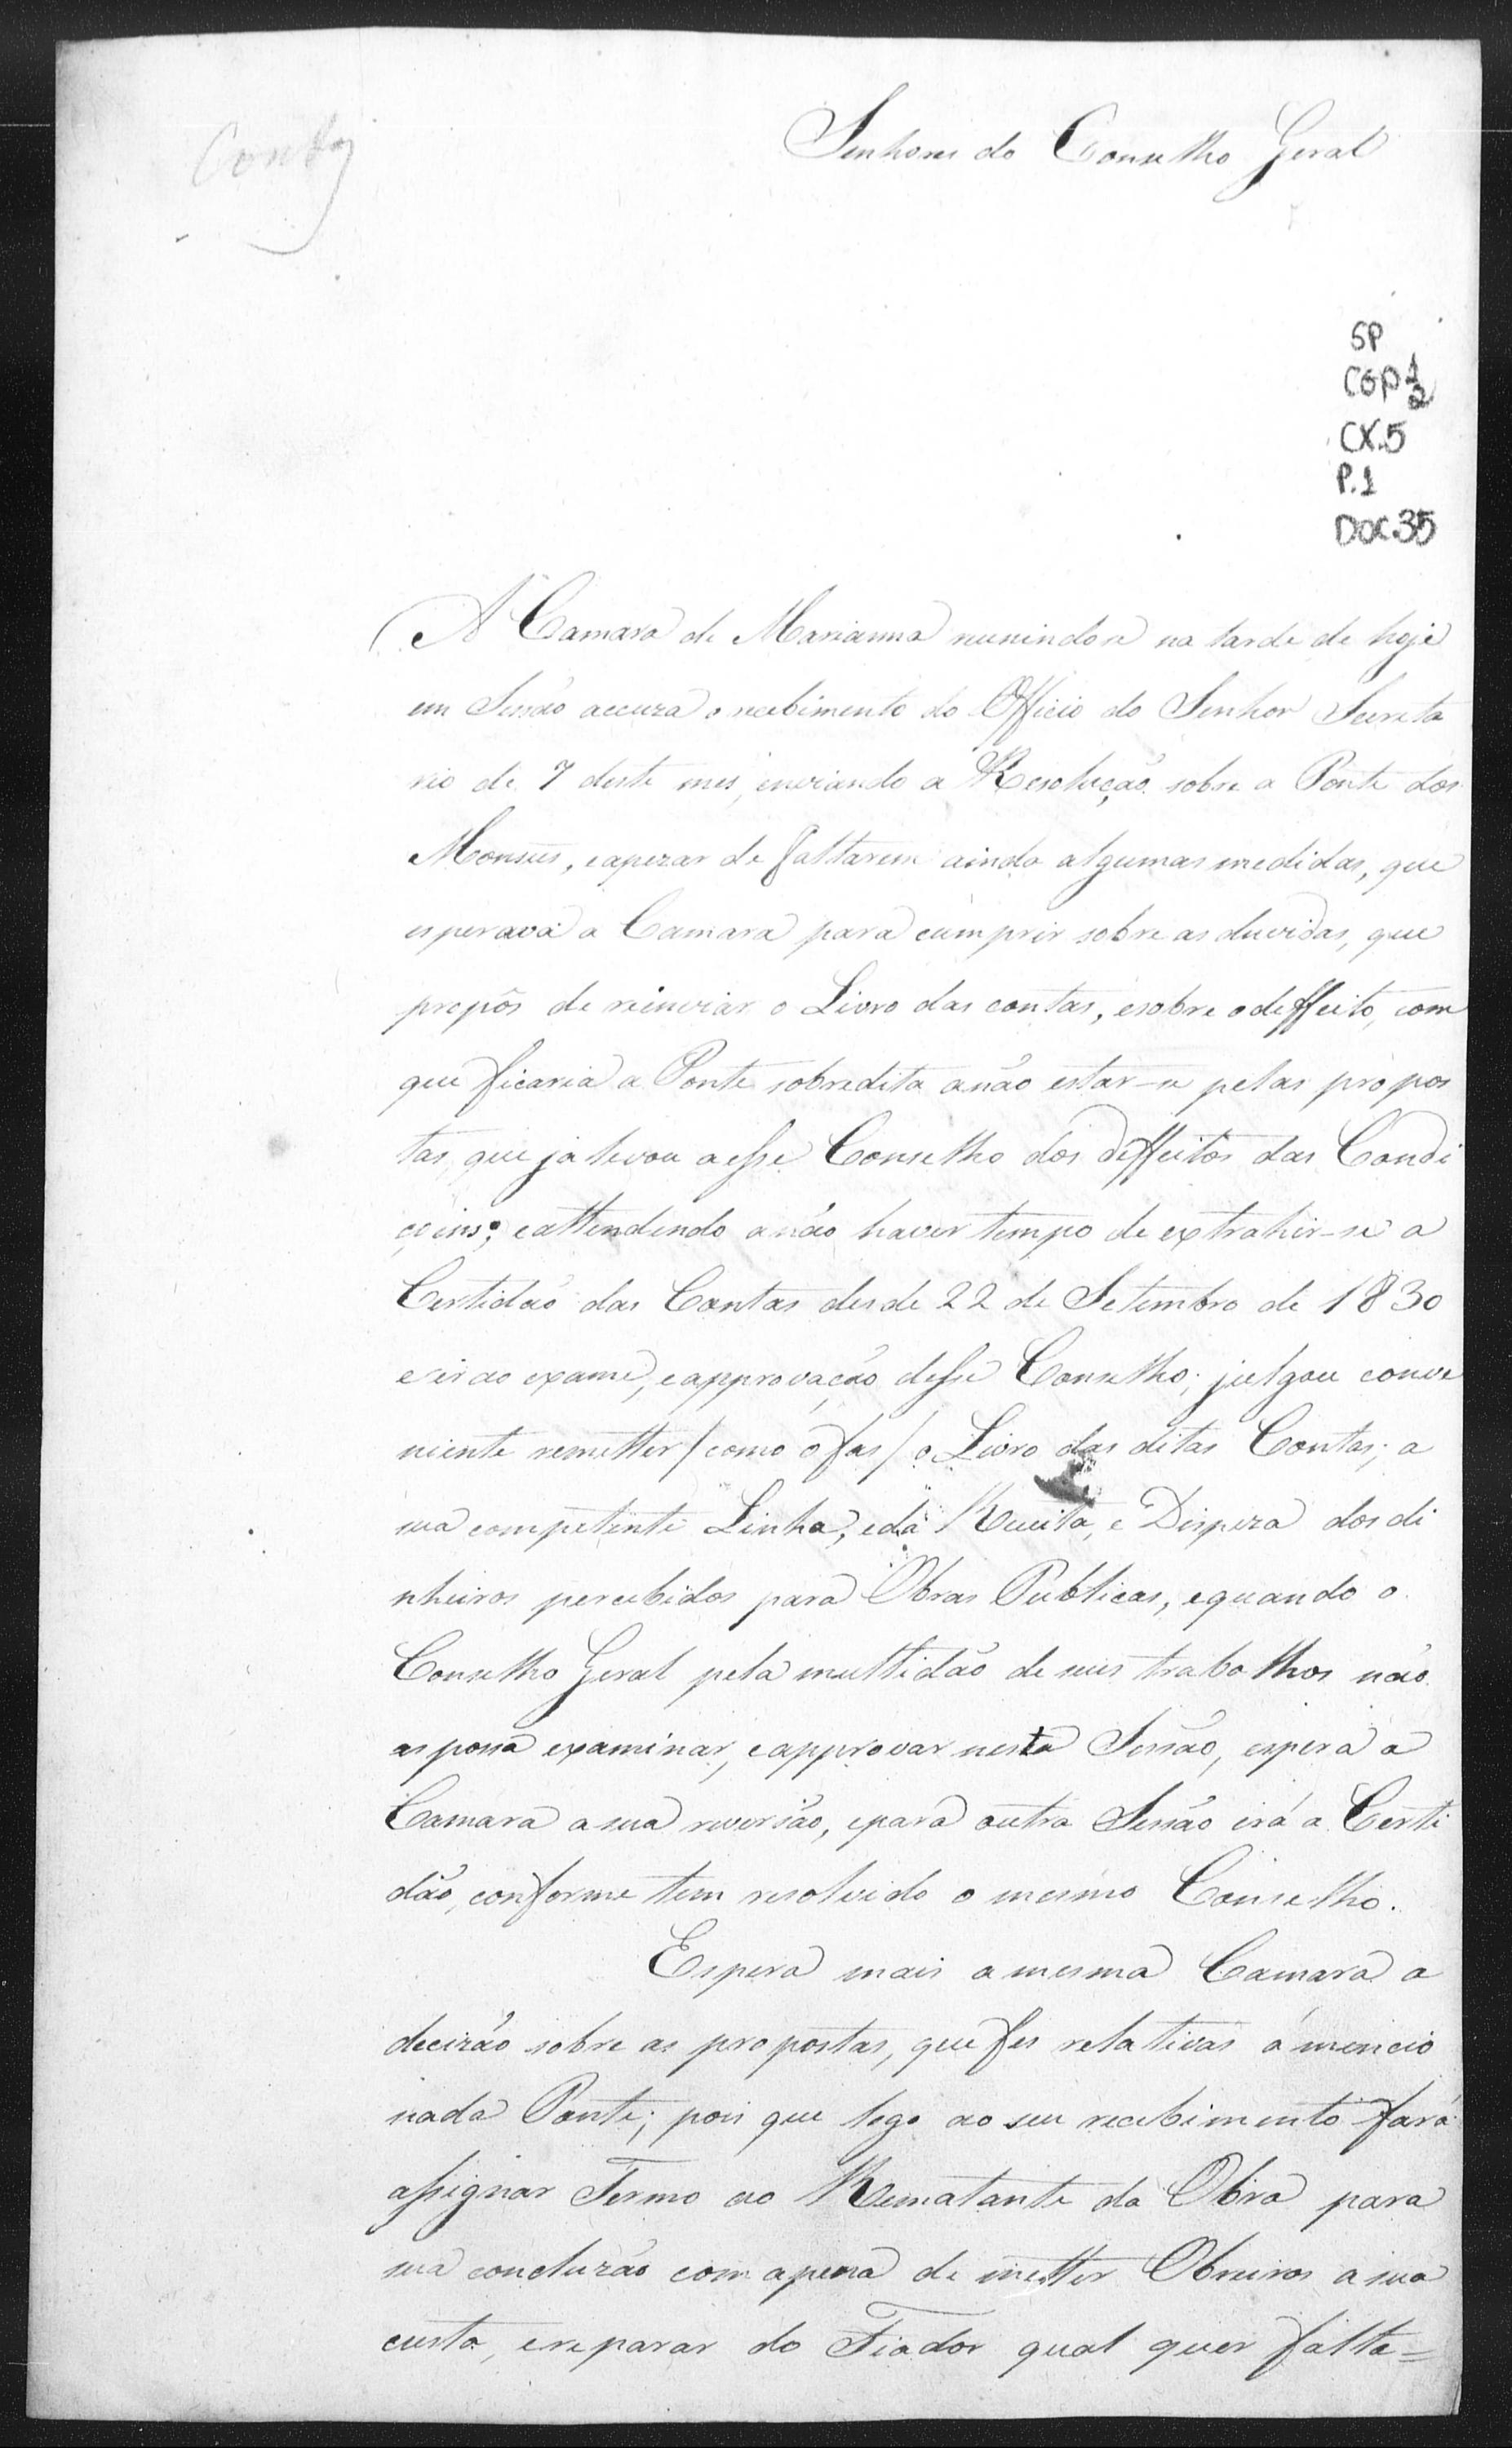 Contas
Senhores do Conselho Geral
SP
CGP 1/2
CX.5
P.1
DOC.35
A Camara de Marianna reunindose na tarde de hoje
em Sessão accuza o recebimento do Officio do Senhor Secreta
rio de 7 deste mes, enviando a Resolução sobre a Ponte dos
Monsus, eapezar de faltarem ainda algumas medidas, que
esperava a Camara para cumprir sobre as duvidas, que
propôs de reinviar o Livro das contas, esobre odeffeito, com
que ficaria a Ponte sobredita anão estar-se pelas propos
tas, que ja levou aesse Conselho dos deffeitos das Condi
çoens; eattendendo anão haver tempo de extrahir-se a
Certidão das Contas desde 22 de Setembro de 1830
eir ao exame, eapprovação desse Conselho; julgou conve
niente remetter / como o fas / o Livro das ditas Contas; a
sua competente Linha, eda Receita, e Dispeza dos di
nheiros percebidos para Obras Publicas, equando o
Conselho Geral pela multidão de seus trabalhos não
as possa examinar, eapprovar nesta Sessão, espera a
Camara asua reversão, epara outra Sessão irá a Certi
dão, conforme tem resolvido o mesmo Conselho.
Espera mais a mesma Camara a
decizão sobre as propostas, que fes relativas á mencio
nada Ponte; pois que logo ao seu recebimento fará
assignar Termo ao Rematante da Obra para
sua concluzão com apena de metter Obreiros a sua
custa, ereparar do Fiador qual quer falta=